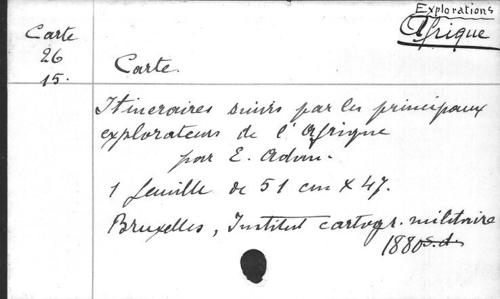 Explorations
Afrique
Carte
26
15.
Carte.
Itineraires suivis par les principaux
explorateurs de l'Afrique
par E. Adam.
1 feuille de 51 cm X 47.
Bruxelles, Institut cartogr. militaire
1880 s.d.